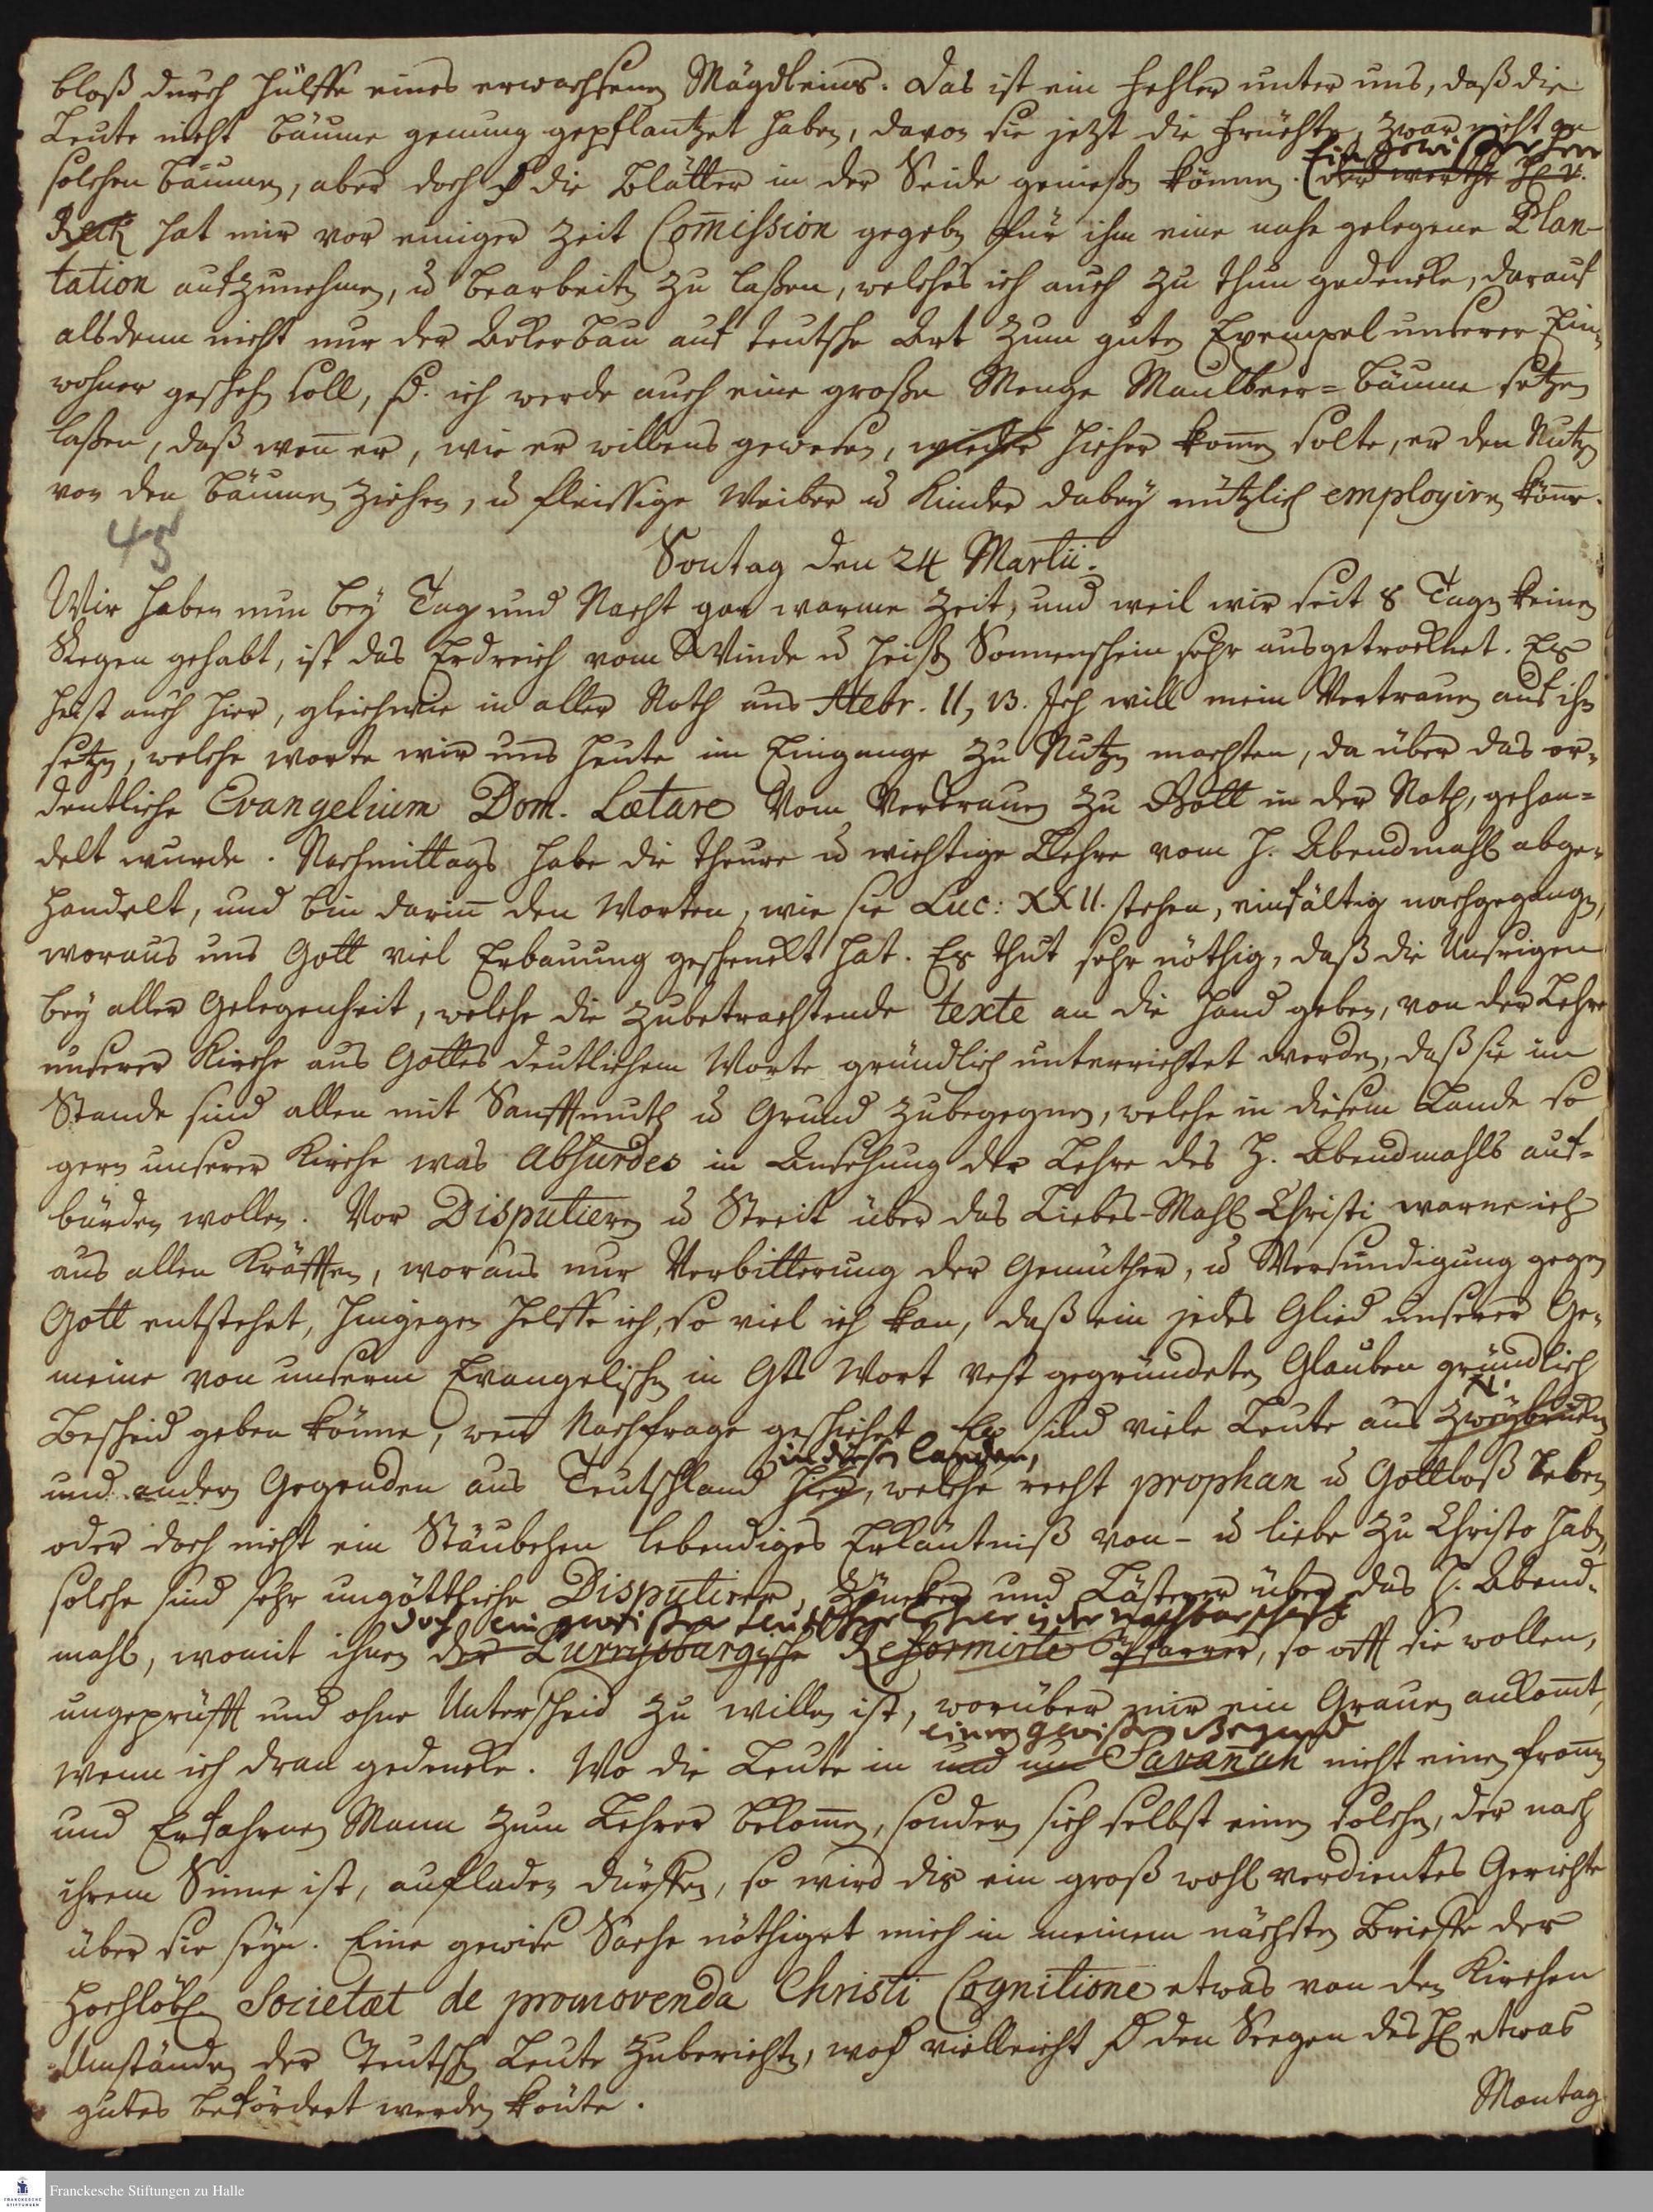 bloß durch Hülffe eines erwachsenen Mägdleins. Das ist ein Fehler unter uns, daß die
Leute nicht Bäume genung gepflantzet haben, davon sie jetzt die Früchte, zwar nicht an
solchen Bäumen, aber doch die Blätter in der Seide genießen können. (der werthe H. v.
Ein gewißer Herr
Reck hat mir vor einiger Zeit Com̅ission gegeben für ihn eine nahe gelegene Plan-
tation aufzunehmen, u. bearbeiten zu laßen, welches ich auch zu thun gedencke, darauf
alsdenn nicht nur der Ackerbau auf teutsche Art zum guten Exempel unserer Ein-
wohner geschehen soll, sd. ich werde auch eine große Menge Maulbeer=Bäume setzen
laßen, daß wen̅ er, wie er willens gewesen, wieder hieher kom̅en solte, er den Nutzen
von den Bäumen ziehen, u. fleissige Weiber u. Kinder dabey nützlich employiren kön̅e.
45
Sontag den 24 Martii.
Wir haben nun bey Tag und Nacht gar warme Zeit, und weil wir seit 8 Tagen keinen
Regen gehabt, ist das Erdreich vom Winde u. heißen Sonnenschein sehr ausgetrocknet. Es
heist auch hier, gleichwie in aller Noth aus Hebr. 11, 13. Ich will mein Vertrauen auf ihn
setzen, welche Worte wir uns heute im Eingange zu Nutzen machten, da über das or-
dentliche Evangelium Dom. Lætare Vom Vertrauen zu Gott in der Noth, gehan=
delt wurde. Nachmittags habe die theure u. wichtige Lehre vom H. Abendmahl abge-
handelt, und bin darin̅ den Worten, wie sie Luc: XXII. stehen, einfältig nachgegangen,
woraus uns Gott viel Erbauung geschenckt hat. Es thut sehr nöthig, daß die Unsrigen
bey aller Gelegenheit, welche die zubetrachtende texte an die Hand geben, von der Lehre
unserer Kirche aus Gottes deutlichem Worte gründlich unterrichtet werden, daß sie im
Stande sind allen mit Sanfftmuth u. Grund zubegegnen, welche in diesem Lande so
gern unserer Kirche was Absurdes in Ansehung der Lehre des H. Abendmahls auf=
bürden wollen. Vor Disputiren u. Streit über das Liebes-Mahl Christi warne ich
aus allen Kräfften, woraus nur Verbitterung der Gemüther, u. Versündigung gegen
Gott entstehet, hingegen helffe ich, so viel ich kan, daß ein jedes Glied unserer Ge-
meine von unserm Evangelischen in Gtts Wort vest gegründeten Glauben gründlich
Bescheid geben könne, wen̅ Nachfrage geschiehet. Es sind viele Leute aus Zweybrücken
N.
und andern Gegenden aus Teutschland hier, welche recht prophan u. Gottloß leben
in diesen Landen,
oder doch nicht ein Stäubchen lebendiges Erkäntniß von- u. Liebe zu Christo haben,
solche sind sehr ungöttliche Disputirer, Zäncker und Lästerer über das H. Abend-
mahl, womit ihnen der Purrysburgische Reformirte Pfarrer, so offt sie wollen,
doch ein gewißer teutscher Lehrer in der Nachbarschafft
ungeprüfft und ohne Unterscheid zu willen ist, worüber mir ein Grauen ankom̅t,
wenn ich dran gedencke. Wo die Leute in und um Savan̅ah nicht einen from̅en
einer gewißen Gegend
und Erfahrnen Mann zum Lehrer bekom̅en, sondern sich selbst einen solchen, der nach
ihrem Sinne ist, aufladen dürffen, so wird dis ein groß wohl verdientes Gerichte
über sie seyn. Eine gewiße Sache nöthiget mich in meinem nächsten Brieffe der
Hochlöbl. Societæt de promovenda Christi Cognitione etwas von den Kirchen
Umständen der Teutschen Leute zuberichten, wodurch vielleicht durch den Seegen des Herrn etwas
gutes befördert werden kön̅te.
Montag
Franckesche Stiftungen zu Halle